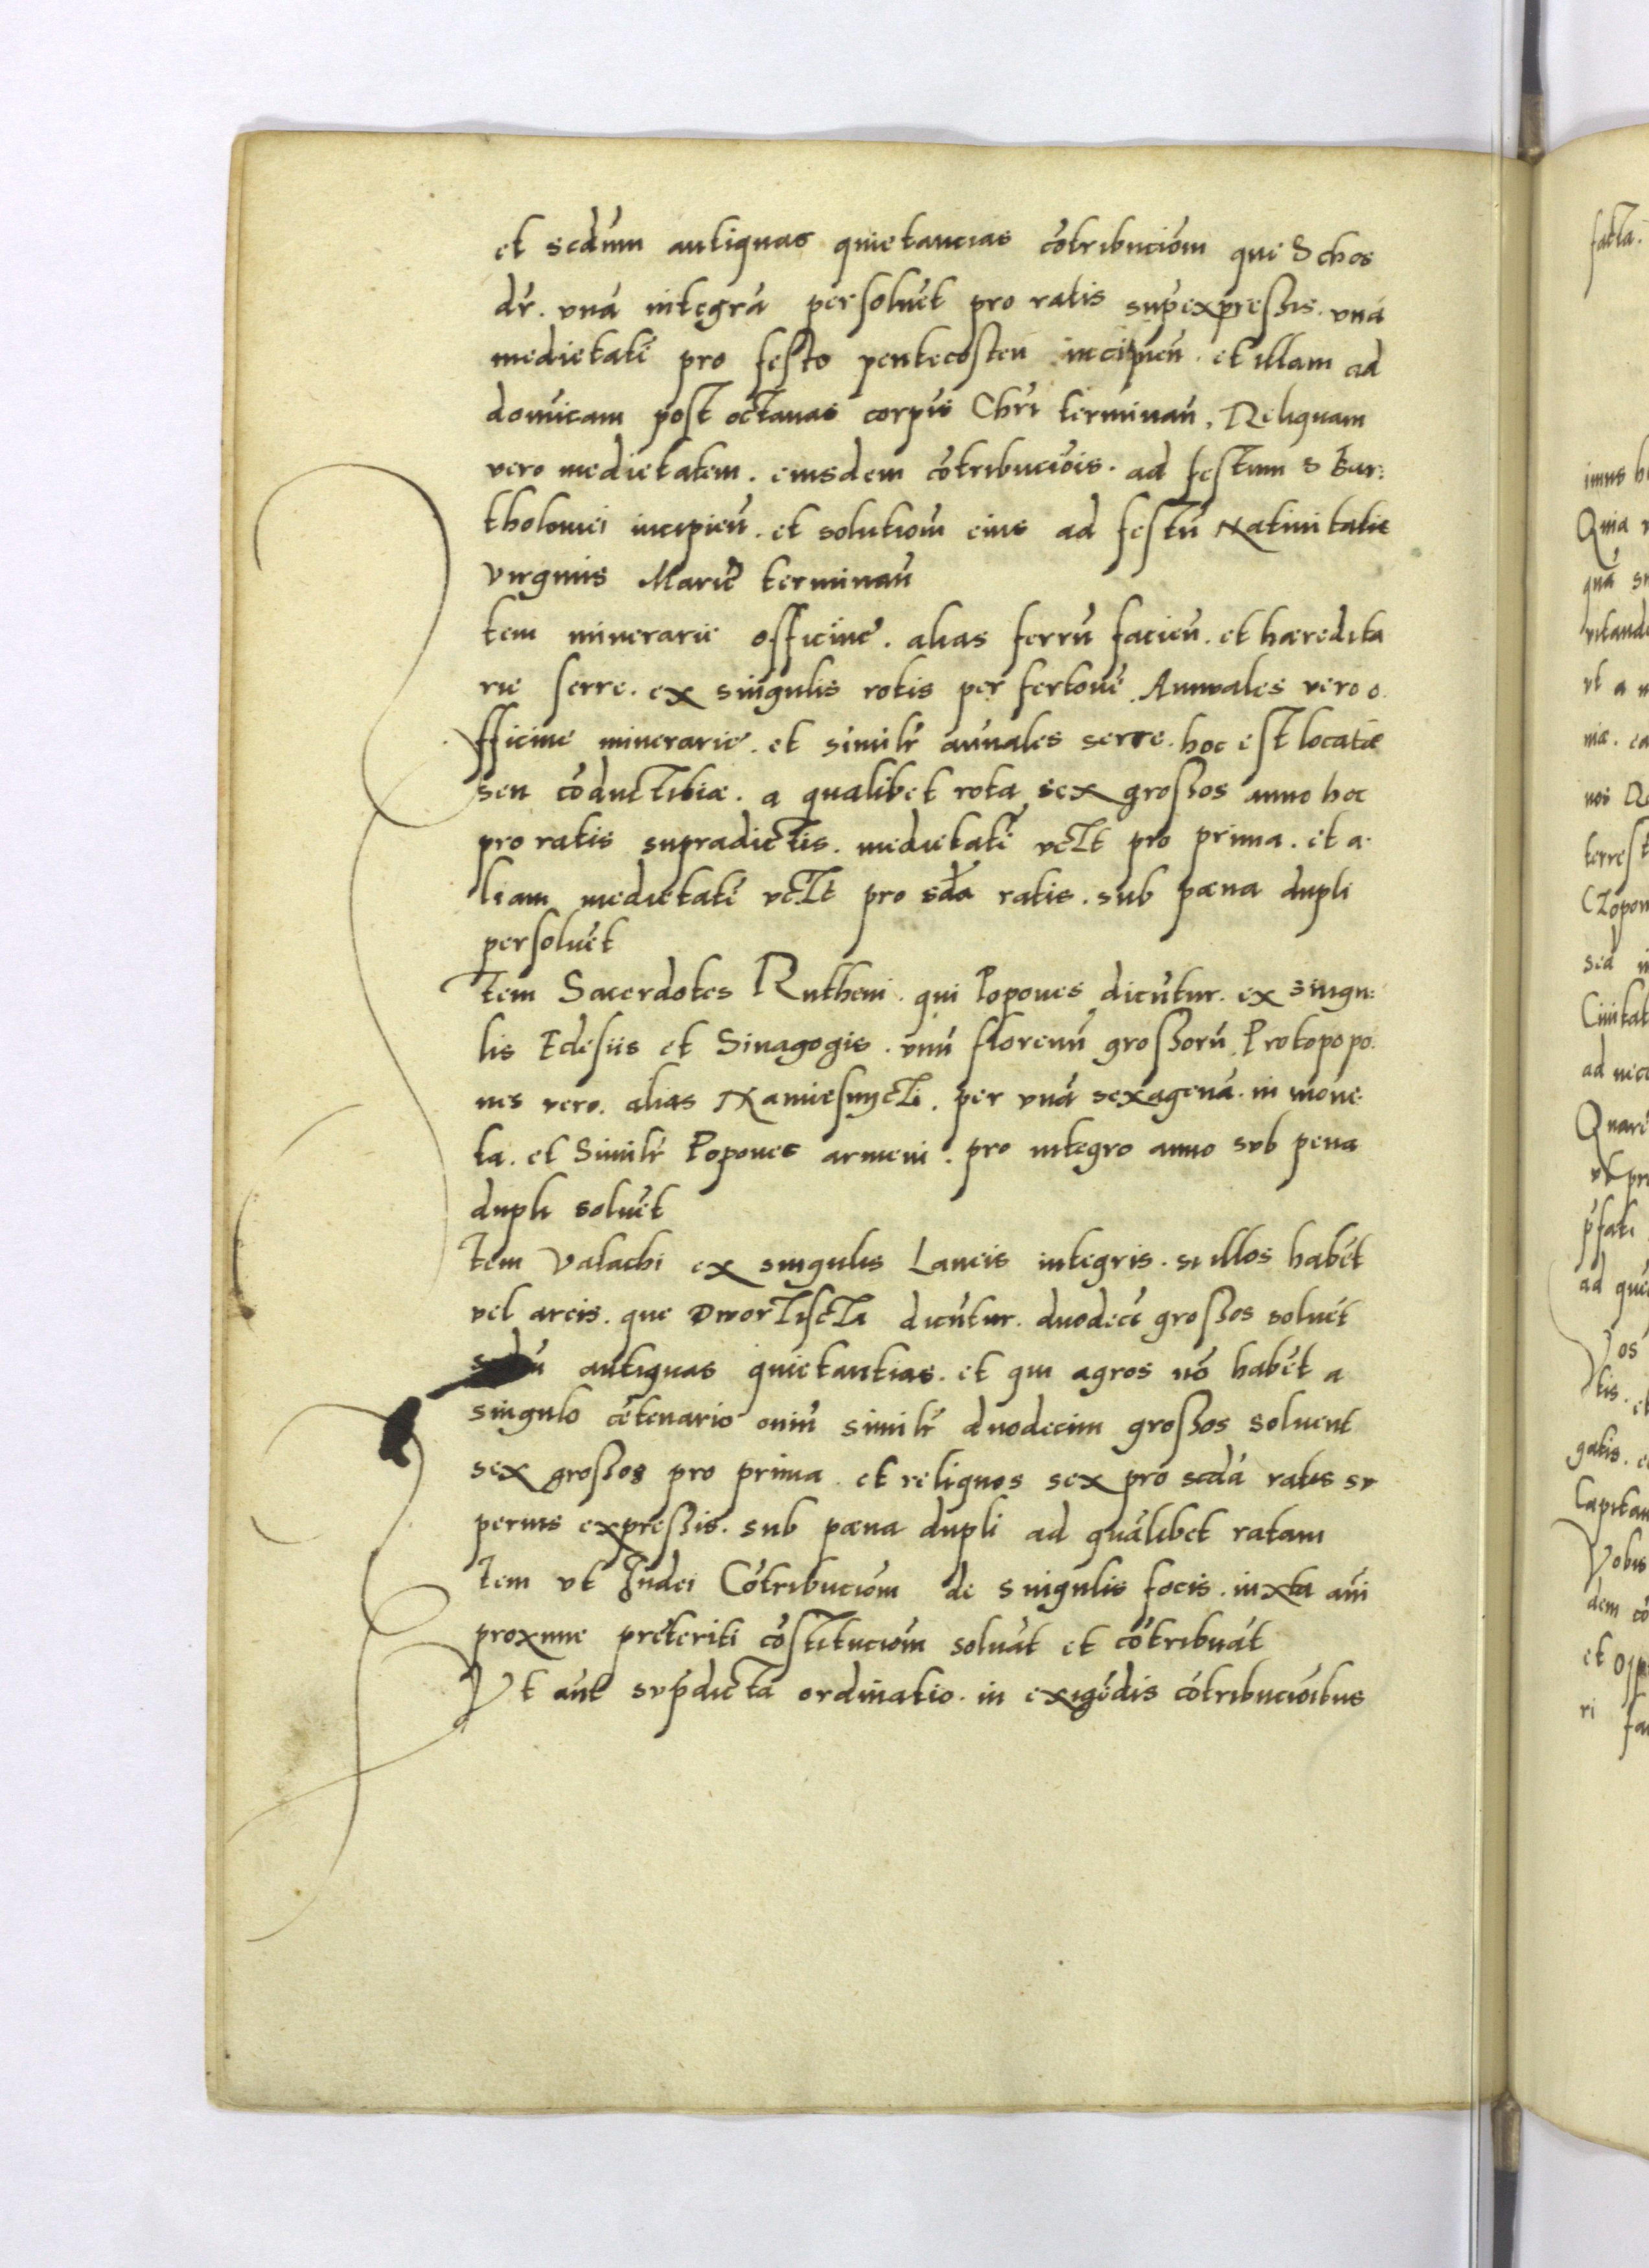 et scdum antiquas quietancias cōtribuciōm que Schos
dr̄. vnā integrā persoluēt pro ratis sup̄expressis. vnā
medietatē pro festo pentecosten incipien̄. et illam ad
domīcam post octauas corpīs Chr̄i terminan̄. Reliquam
vero medietatem. eiusdem cōtribuciōis. ad festum S Bar:
tholomei incipien̄. et solutiom̄ eius ad festū Natiuitatis
virginis Marie terminan̄
Item minerarie officine. alias ferrū facien̄. et hæredita
rie serre. ex singulis rotis per fertonē. Annuales vero o.
fficine minerarie. et similr̄ annales serre. hoc est locatæ
seu cōductibiæ. a qualibet rota sex grossos anno hoc
pro ratis supradictis. medietatē vclt pro prima. et a.
liam medietatē vclt pro scda ratis. sub pæna dupli
persoluēt
Item Sacerdotes Rutheni. qui Popoues dicūtur. ex singu:
lis Eclesiis et Sinagogis. vnū florenū grossorū. Protopopo.
nes vero. alias Namiesnyczi. per vnā sexagenā. in mone.
ta. et Similr̄ Popoues armeni. pro integro anno svb pena
dupli soluēt
Item Valachi ex singulis Laneis integris. si illos habēt
vel areis. que Dworziscza dicūtur. duodecī grossos soluēt
scdū antiquas quietantias. et qui agros nō habēt a
singulo cētenario oniū similr̄ duodecim grossos soluent
sex grossos pro prima. et reliquos sex pro scdā ratis sv
perius expressis. sub pæna dupli ad quālibet ratam
Item vt Judei Cōtribuciōm de singulis focis. iuxta an̄i
proxime preteriti cōstituciōm soluāt et cōtribuāt
Vt aūt svp̄dicta ordinatio. in exigēdis cōtribuciōibus